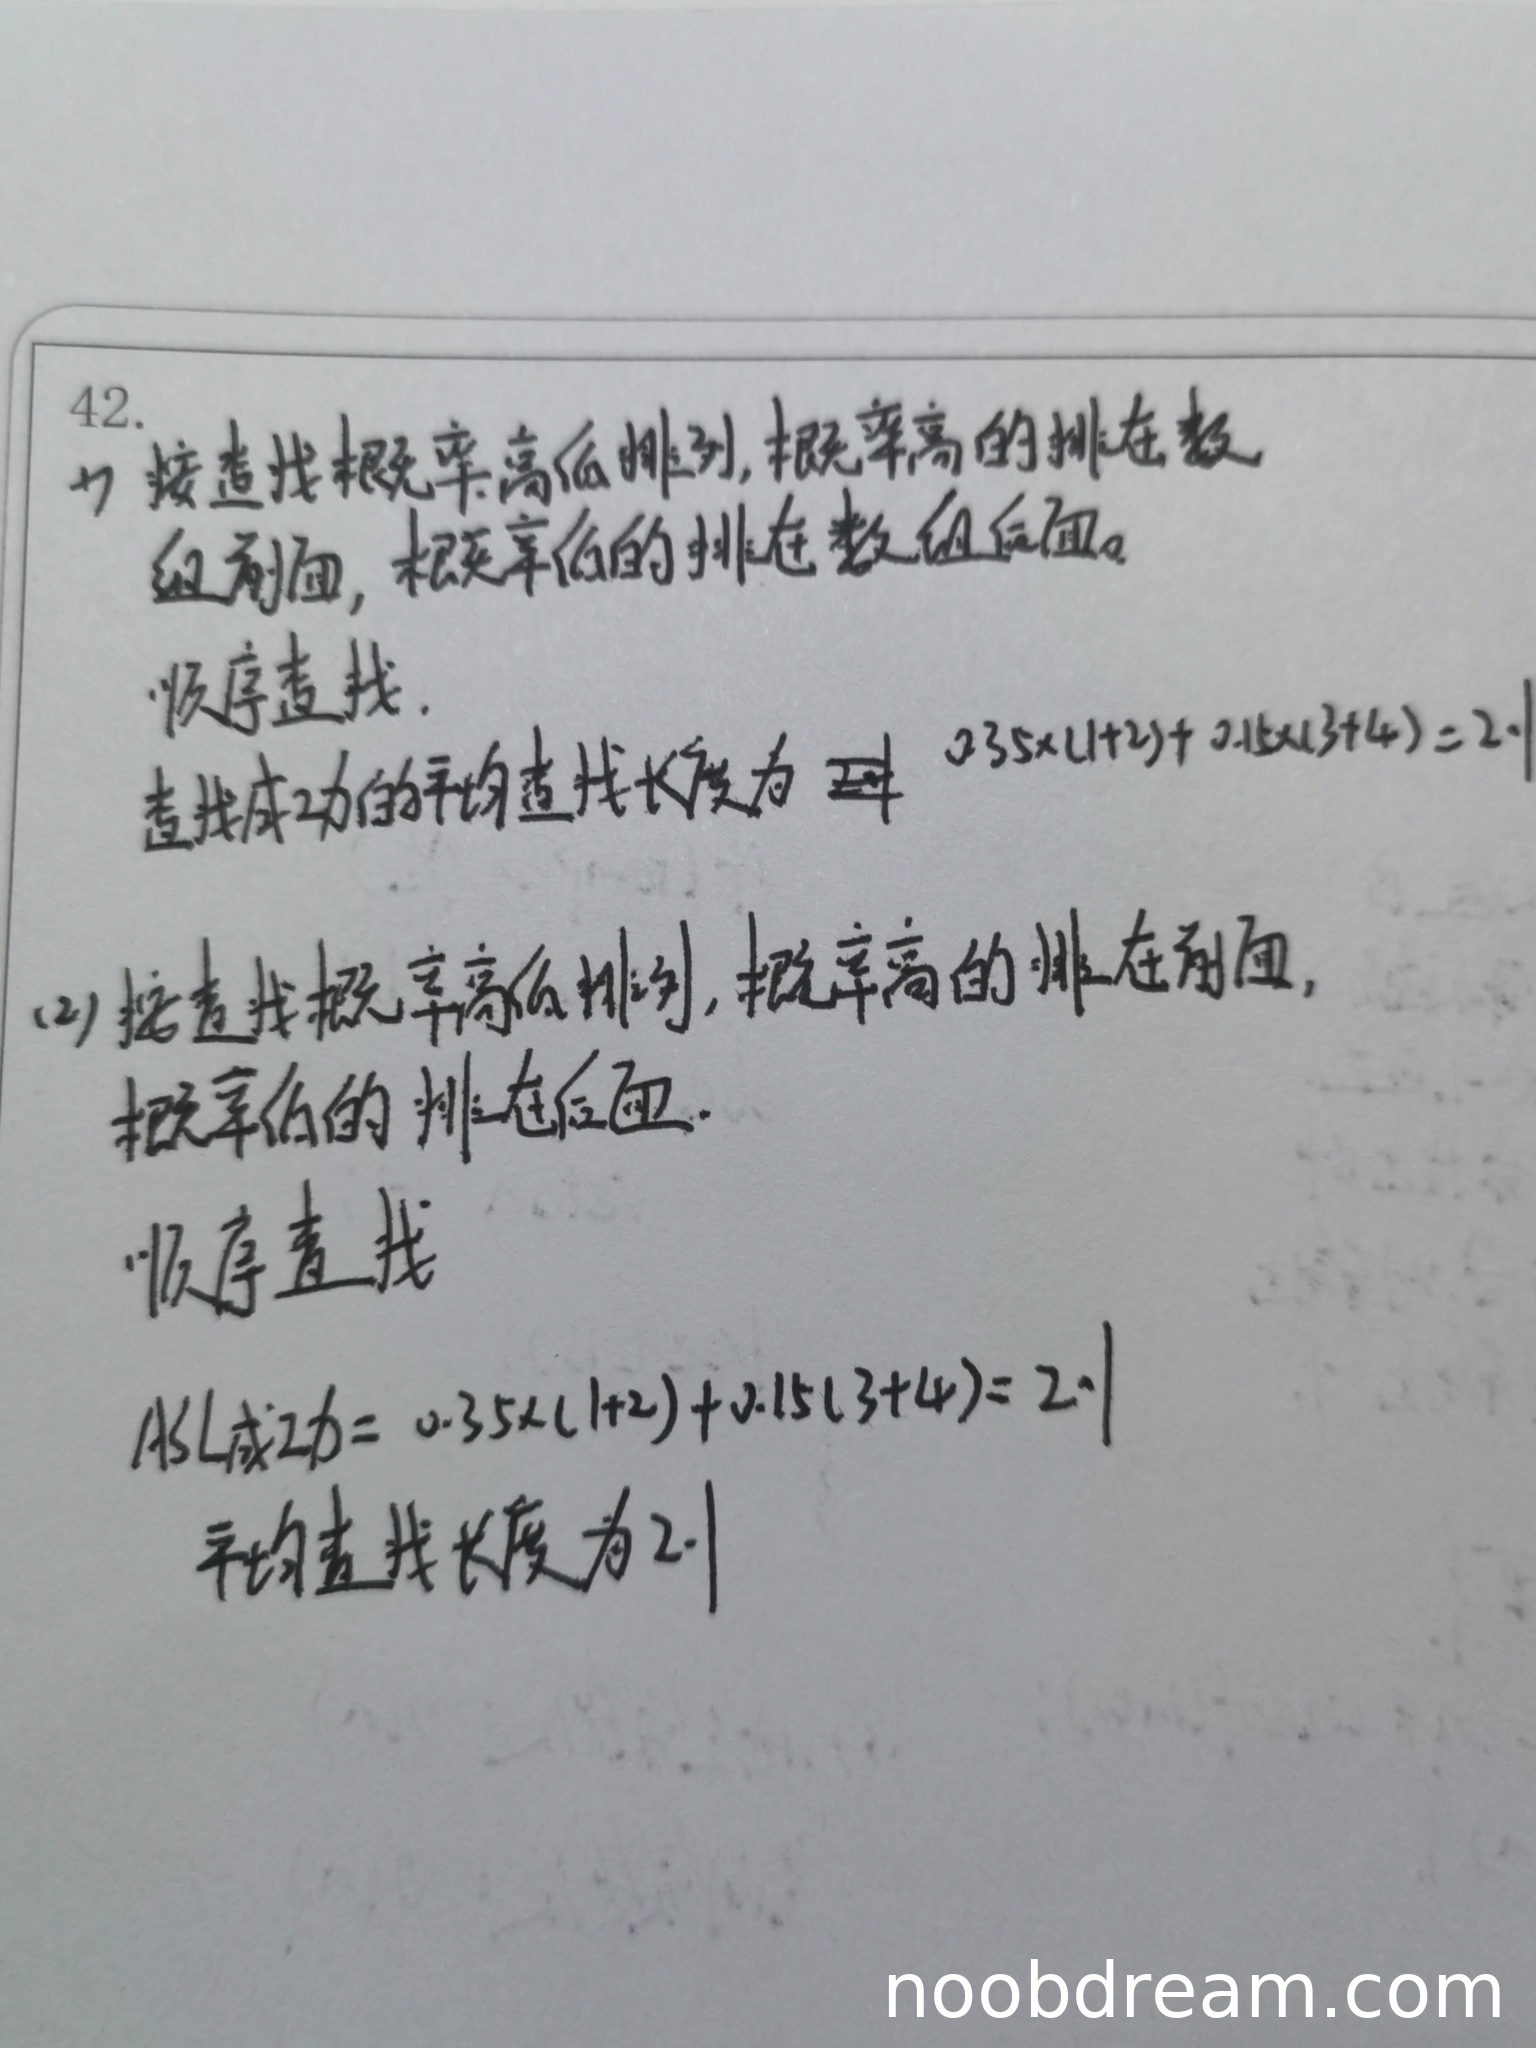 42.
(1) 按查找概率高低排列,概率高的排在数
组前面,概率低的排在数组后面。
顺序查找.
查找成功的平均查找长度为 0.35×(1+2)+0.15×(3+4)=2.1
(2) 按查找概率高低排列,概率高的排在前面,
概率低的排在后面.
顺序查找
ASL成功= 0.35×(1+2)+0.15(3+4)=2.1
平均查找长度为2.1
noobdream.com